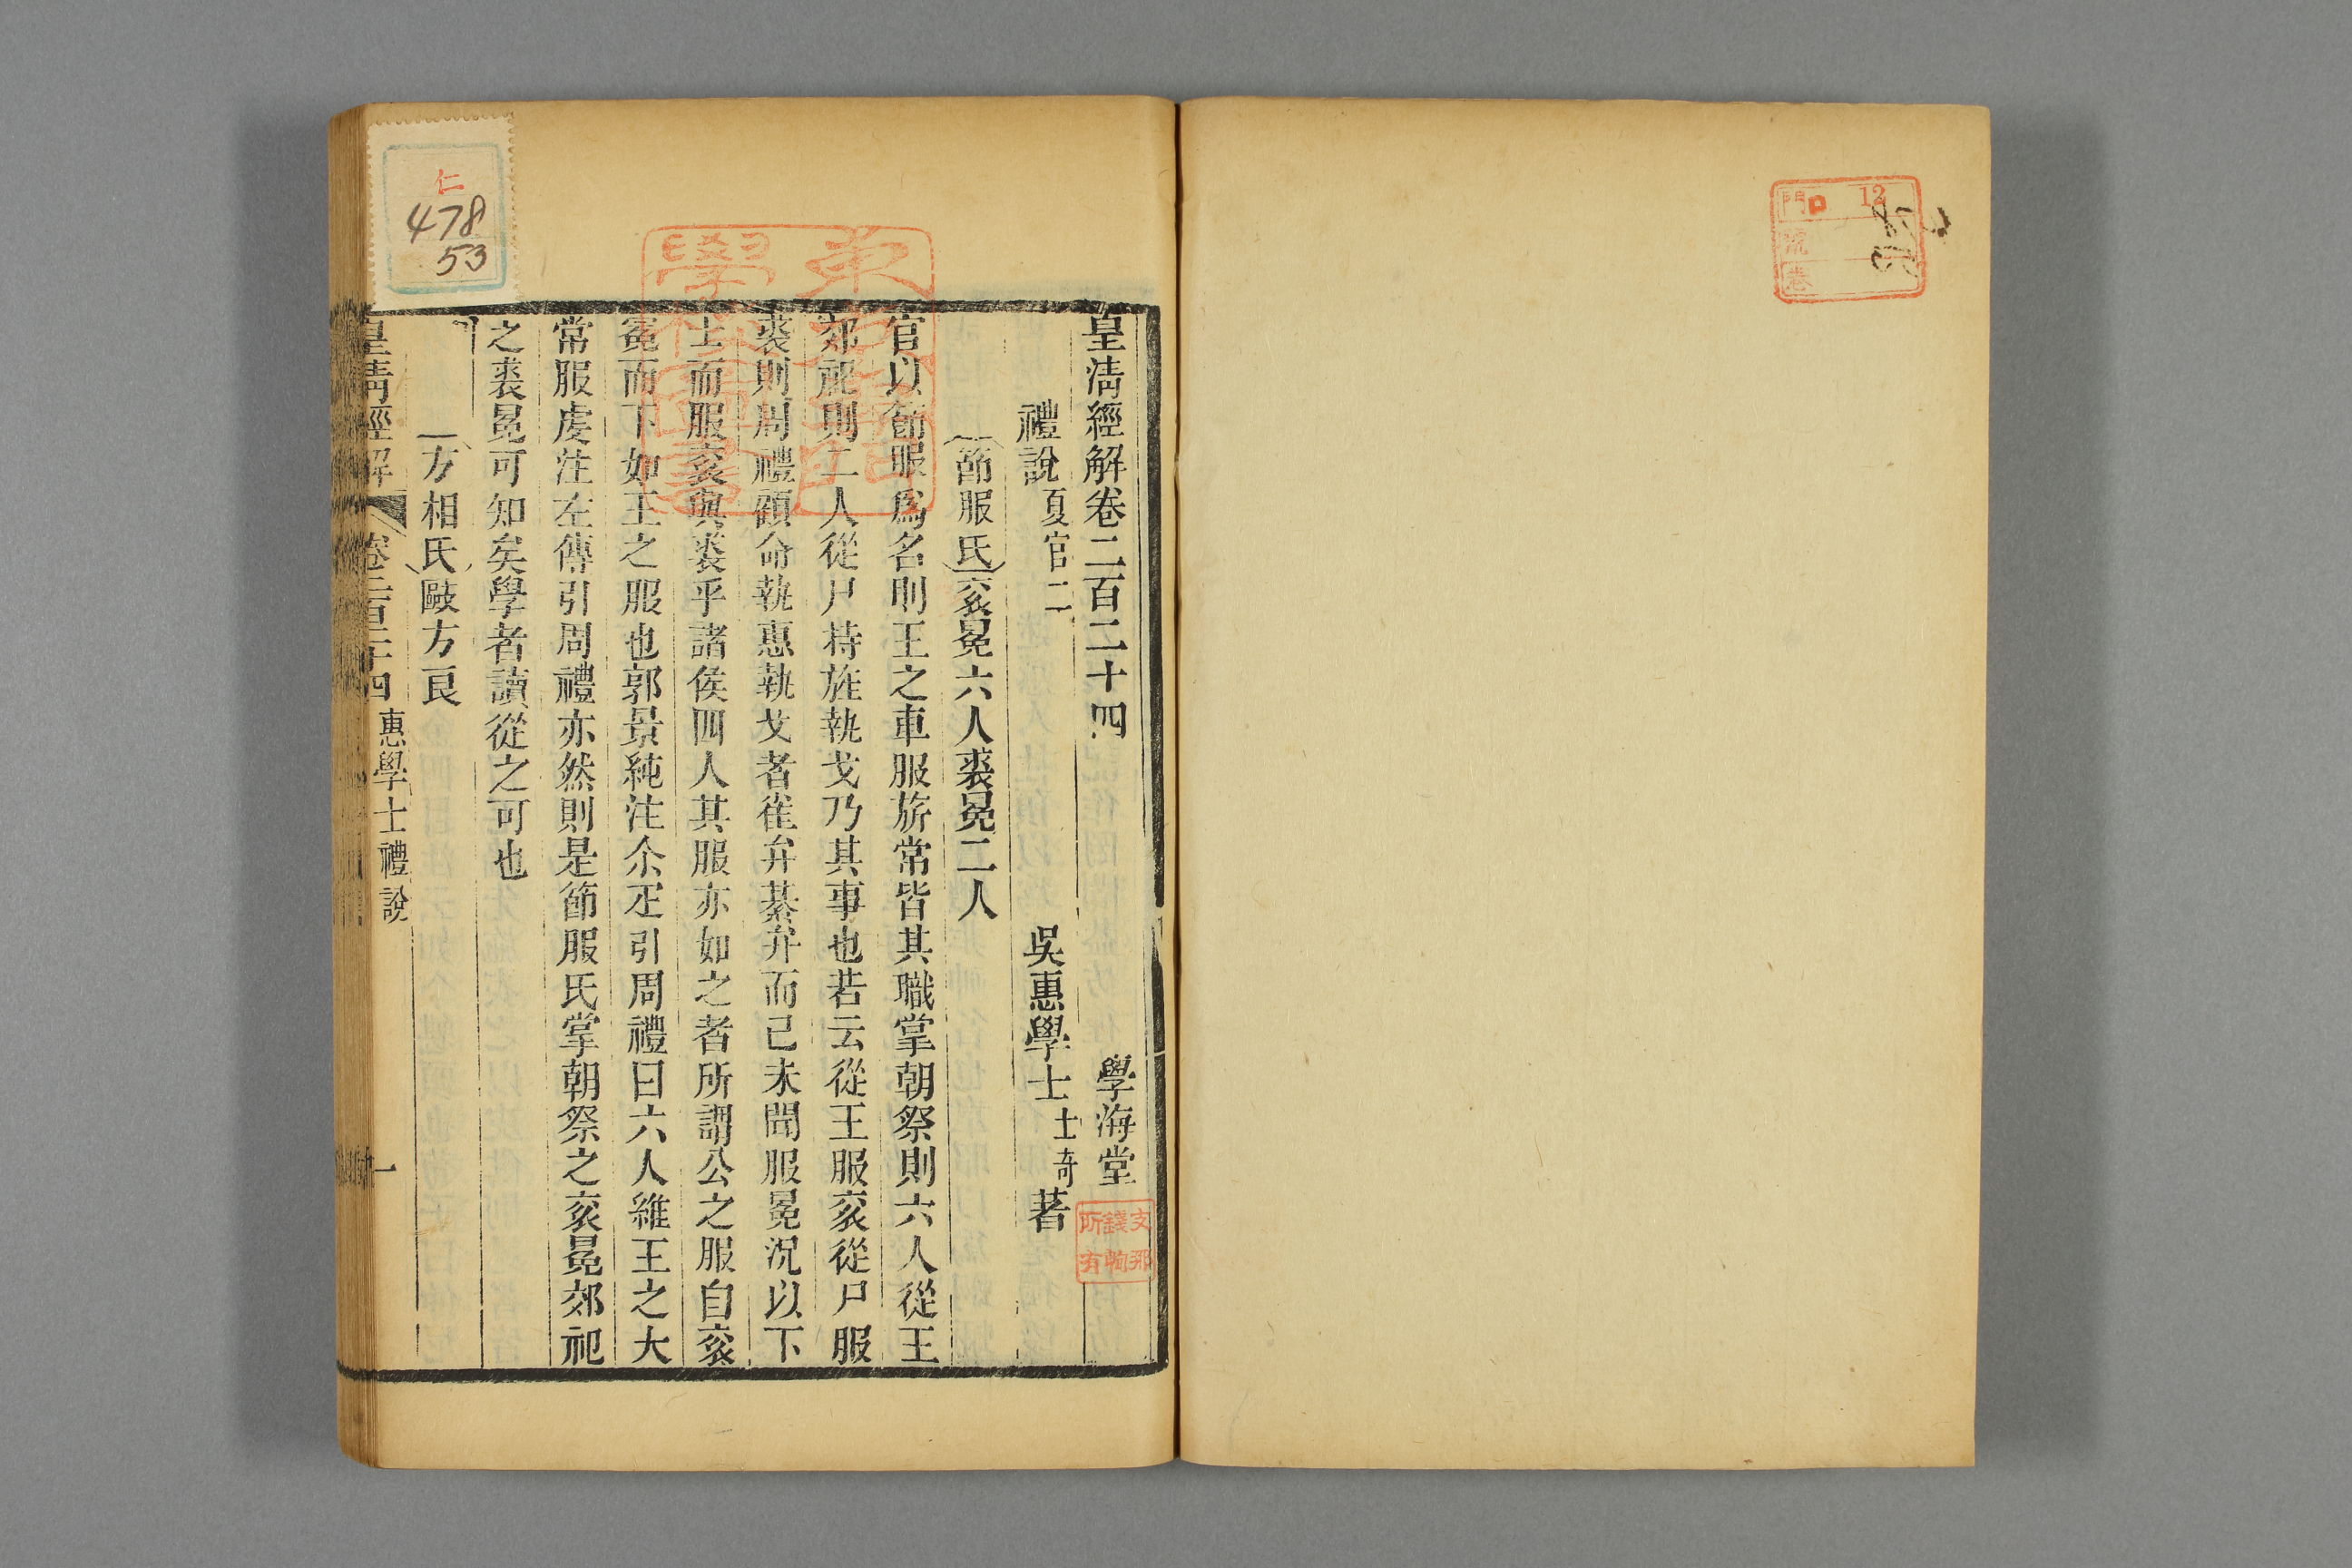 皇清經解卷二百二十四 學海堂
禮說夏官二 吳惠學士士奇著
節服氏袞冕六人裘冕二人
官以節服爲名則王之車服旂常皆其職掌朝祭則六人從王
郊祀則二人從尸持旌執戈乃其事也若云從王服袞從尸服
裘則周禮顧命執惠執戈者雀弁綦弁而已未聞服冕況以下
士而服袞與裘乎諸侯四人其服亦如之者所謂公之服自袞
冕而下如王之服也郭景純注尒疋引周禮曰六人維王之大
常服虔注左傳引周禮亦然則是節服氏掌朝祭之袞冕郊祀
之裘冕可知矣學者讀從之可也
方相氏敺方良
皇清經解 卷二百二十四 惠學士禮說 一
仁
478
53
支那
錢恂
所有
12
門
號
卷